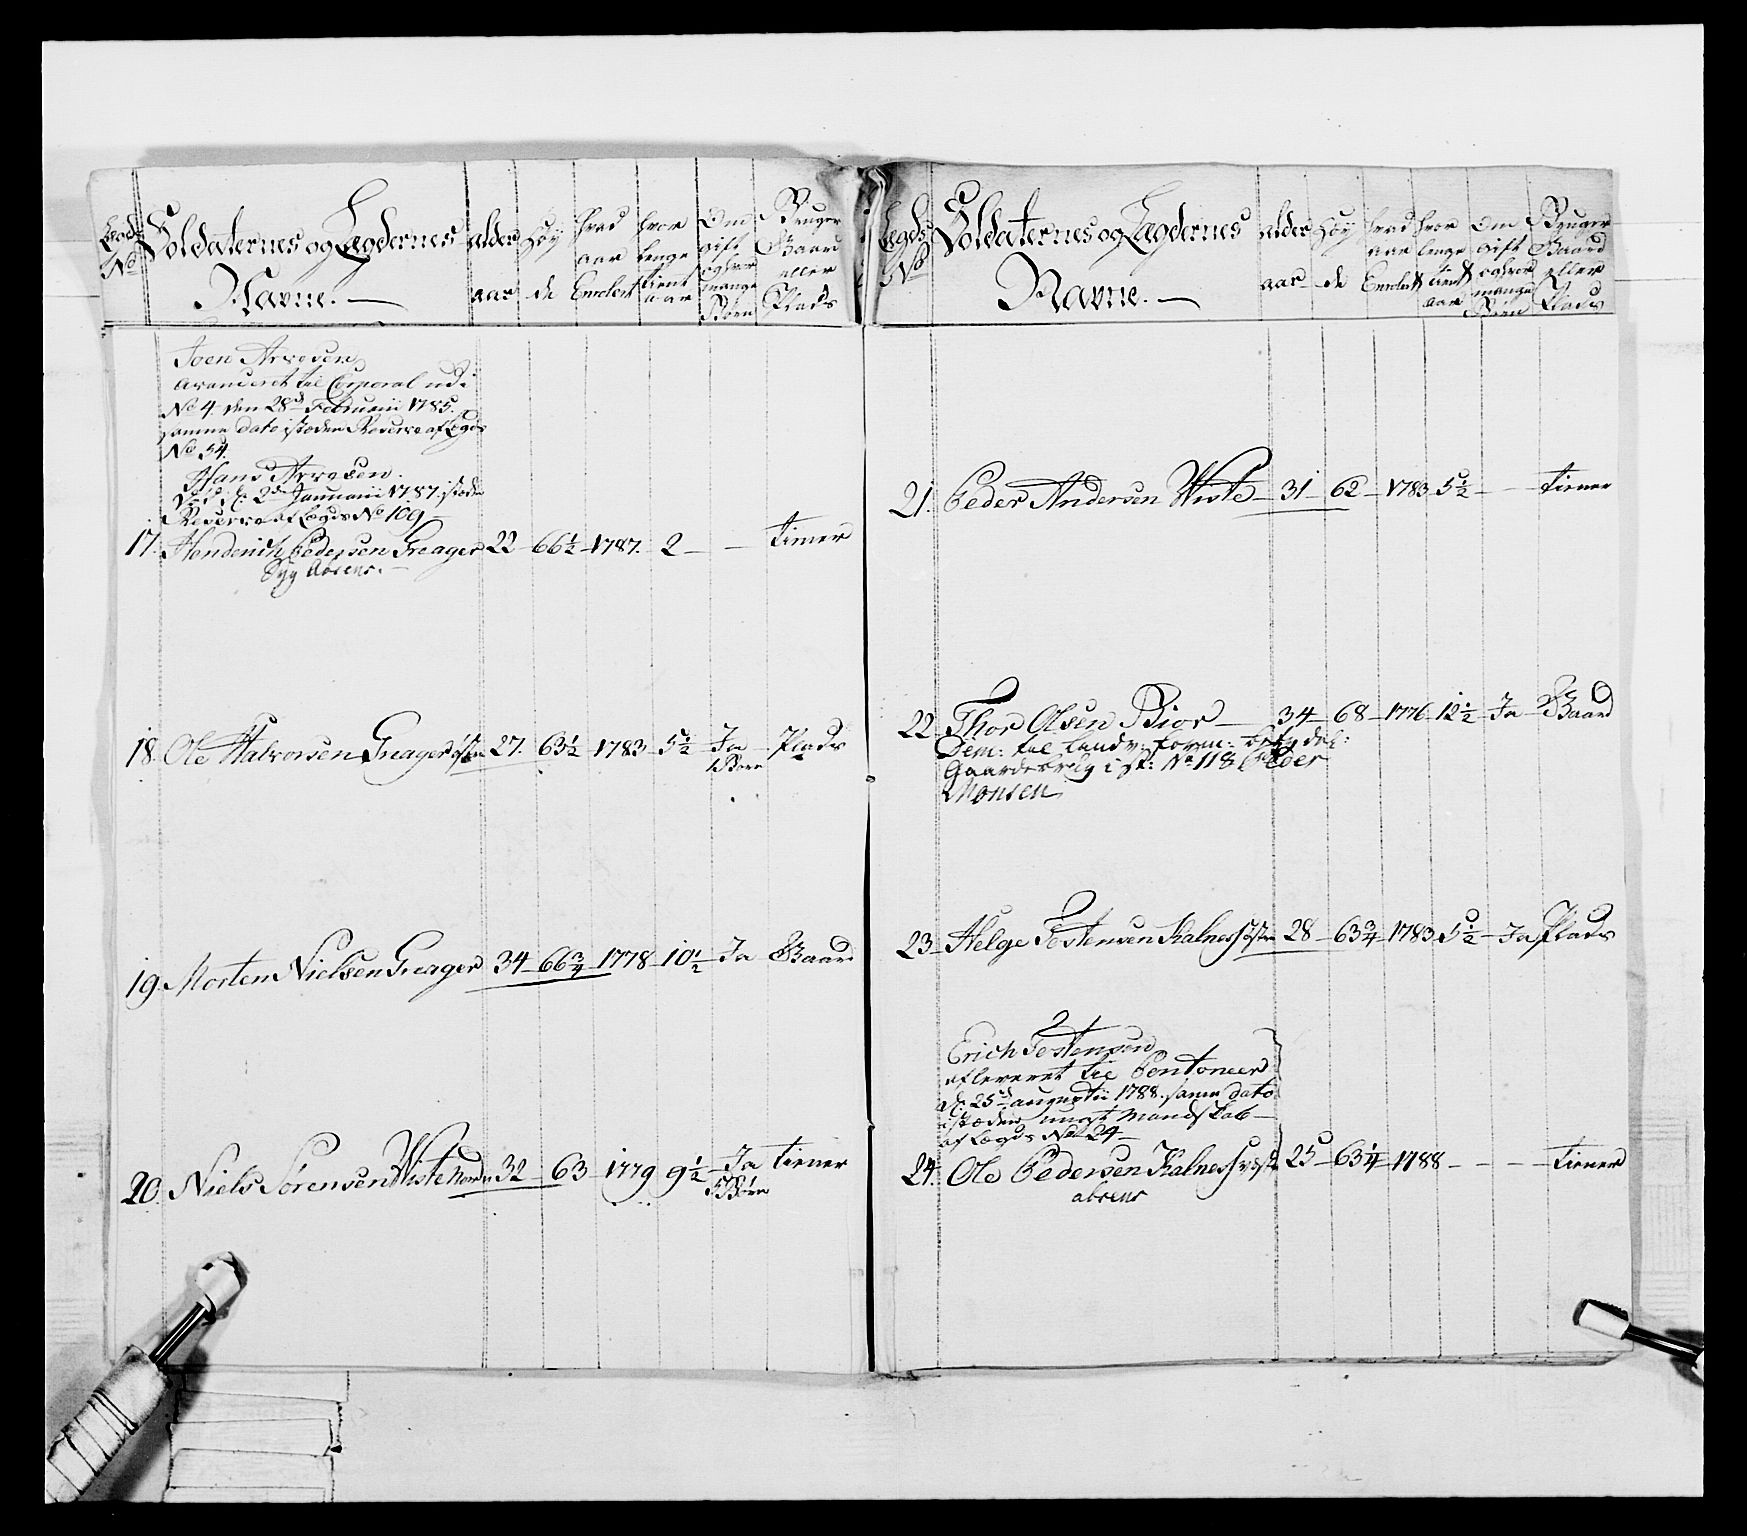 Lægds No Soldaternes og Lægdernes Navne. alder aar Høy de hvad aar Enrolert hvor lenge tient aar Om gift og hvor mange Børn Bruger Gaard eller Plads
Joen
avanceret til Corporal udi
No 4. den 28d Februarii 1785.
samme dato istæden Reserve af Lægds
No 54.
Hans
2den Januarii 1787. istæden
Reserve af Lægds No 109
17. Henderich Pedersen Greager 22 - 66½ - 1787. 2 - - Tiener
Syg Absens.
18. Ole Halvorsen Greager østre 27. 63½ 1783 5½ Ja Plads
1 Børn
19. Morten Nielsen Greager 34 - 66¾ - 1778 - 10½ - Ja Gaard
20. Niels Sørensen Wiste Nordre 32 - 63 - 1779 9½ - Ja Tiener
5 Børn
Lægds No Soldaternes og Lægdernes Navne. alder aar Høy de hvad aar Enrolert hvor lenge tient aar Om gift og hvor mange Børn Bruger Gaard eller Plads
21. Peder Andersen Wiste - 31 - 62 - 1783 5½ - - Tiener
22. Thor Olsen Bior - 34 - 68 - 1776 - 12½ - Ja - Gaard
Dem: til Landv:
Gaardebrug i st: No 118 Peder
Monsen
23. Helge Tostensen Kalnes østre 28 - 63¾ - 1783 5½ - Ja Plads
Erich Tostensen
afleveret til Pontoneer
d: 25d augustii 1788. samme dato
istæden ungt Mandskab
af Lægds No 24
24. Ole Pedersen Kalnes 25 - 63¼ - 1788 - - - Tiener
absens